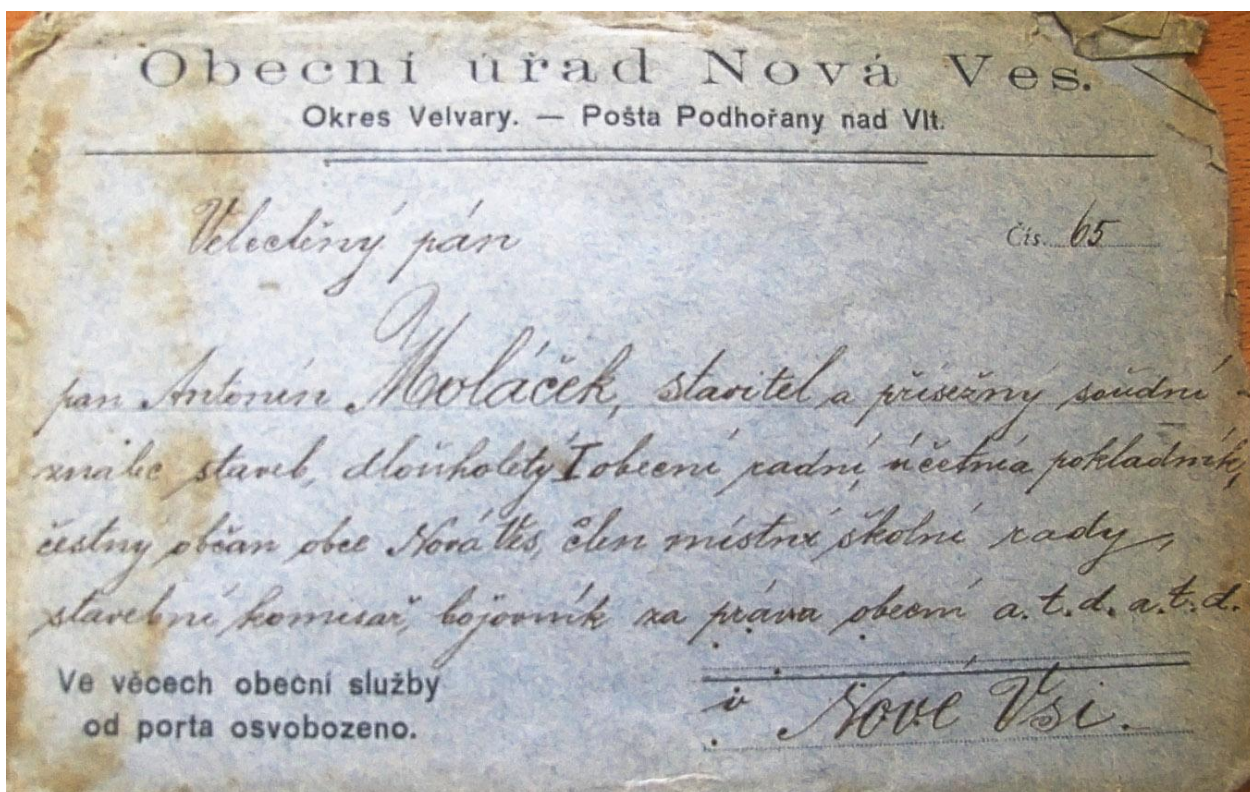 Obecní úřad Nová Ves.
Okres Velvary. — Pošta Podhořany nad Vlt.
Velectěný pán
Čís. 65
pan Antonín Moláček, stavitel a přísežný soudní
znalec staveb, dlouholetý I obecní radní, účetní a pokladník,
čestný občan obce Nová Ves, člen místní školní rady,
stavební komisař, bojovník za práva obecní a.t.d. a.t.d.
Ve věcech obecní služby
od porta osvobozeno.
v Nové Vsi.